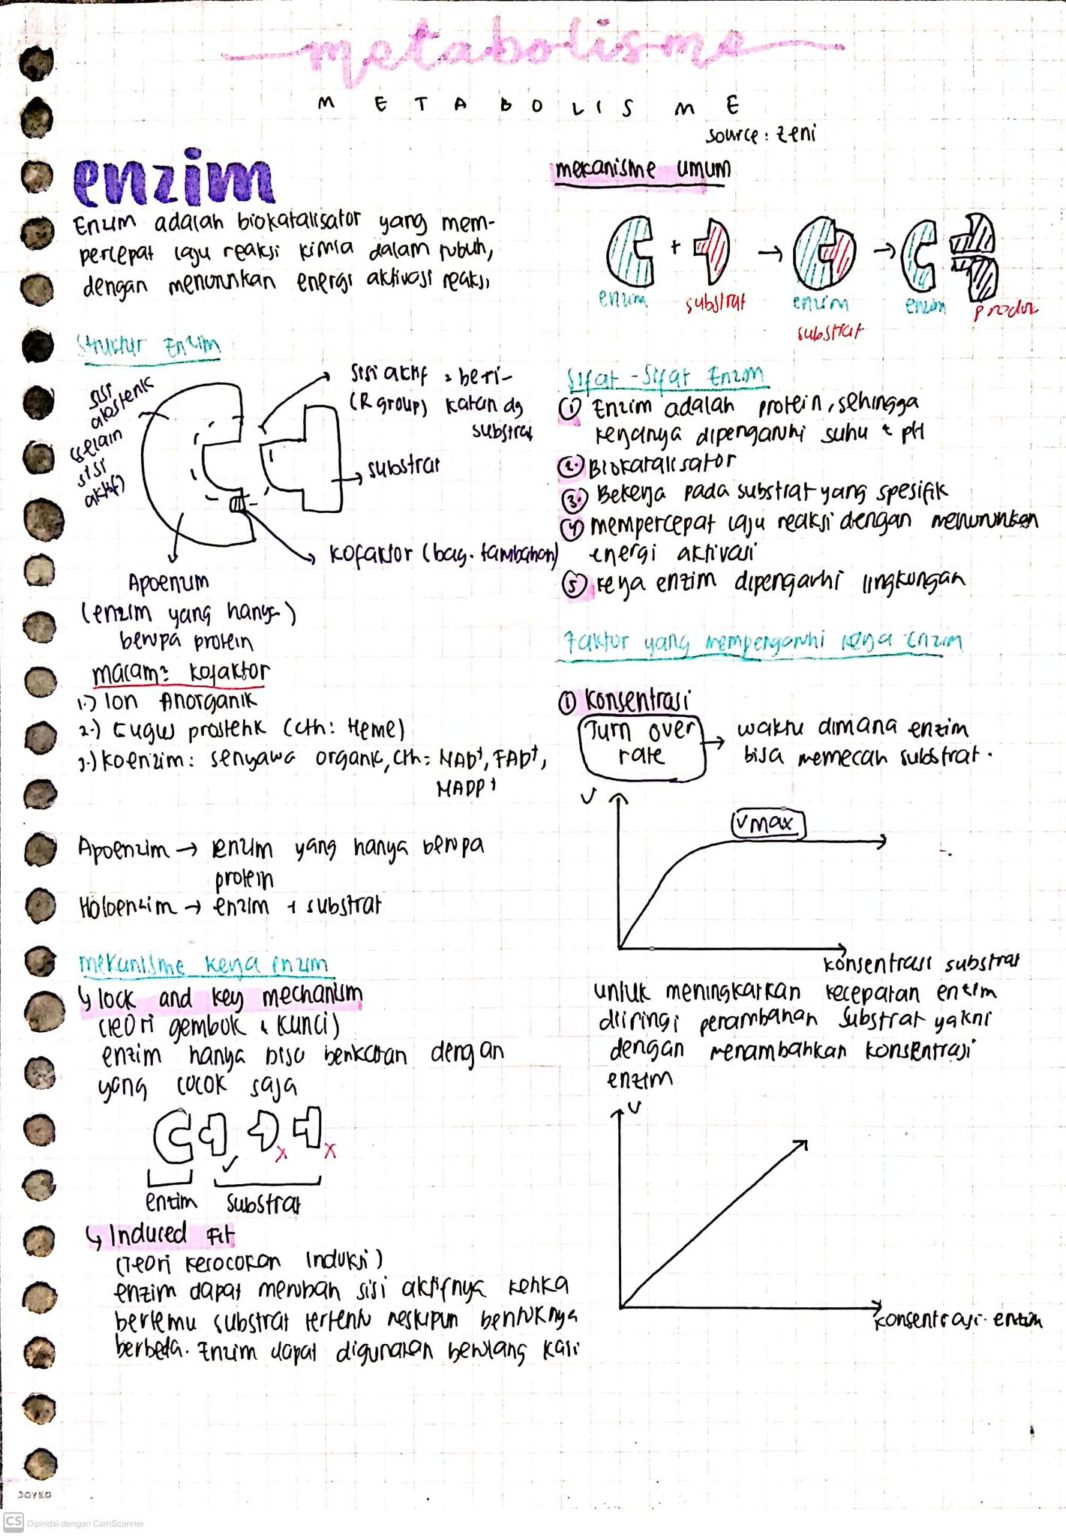 metabolisme
METABOLISME
source: Zeni
enzim
Enzim adalah biokatalisator yang mem-
percepat laju reaksi kimia dalam tubuh,
dengan menurunkan energi aktivasi reaksi
Struktur Enzim
sisi
alosterik
(selain
sisi
aktif)
sisi aktif : beri-
(R group) katan dg
substrat
substrat
kofaktor (bag. tambahan)
Apoenzim
(enzim yang hanya)
berupa protein
macam² kofaktor
1.) Ion Anorganik
2.) Gugus prostetik (cth: Heme)
3.) koenzim: senyawa organik, cth: NAD+, FAD+,
NADP+
Apoenzim → enzim yang hanya berupa
protein
Holoenzim → enzim + substrat
mekanisme kerja enzim
↳ lock and key mechanism
(teori gembok & kunci)
enzim hanya bisa berikatan dengan
yang cocok saja
✓ x x
enzim substrat
↳ Induced Fit
(Teori kecocokan Induksi)
enzim dapat merubah sisi aktifnya ketika
bertemu substrat tertentu meskipun bentuknya
berbeda. Enzim dapat digunakan berulang kali
mekanisme umum
+ → →
enzim substrat enzim substrat enzim produk
Sifat-Sifat Enzim
① Enzim adalah protein, sehingga
kerjanya dipengaruhi suhu & pH
②. Biokatalisator
③. Bekerja pada substrat yang spesifik
④ mempercepat laju reaksi dengan menurunkan
energi aktivasi
⑤ kerja enzim dipengaruhi lingkungan
Faktor yang mempengaruhi kerja enzim
① Konsentrasi
Turn over
rate → waktu dimana enzim
bisa memecah substrat.
V
Vmax
konsentrasi substrat
untuk meningkatkan kecepatan enzim
diiringi penambahan substrat yakni
dengan menambahkan konsentrasi
enzim
V
konsentrasi enzim
JOYKO
CS Dipindai dengan CamScanner